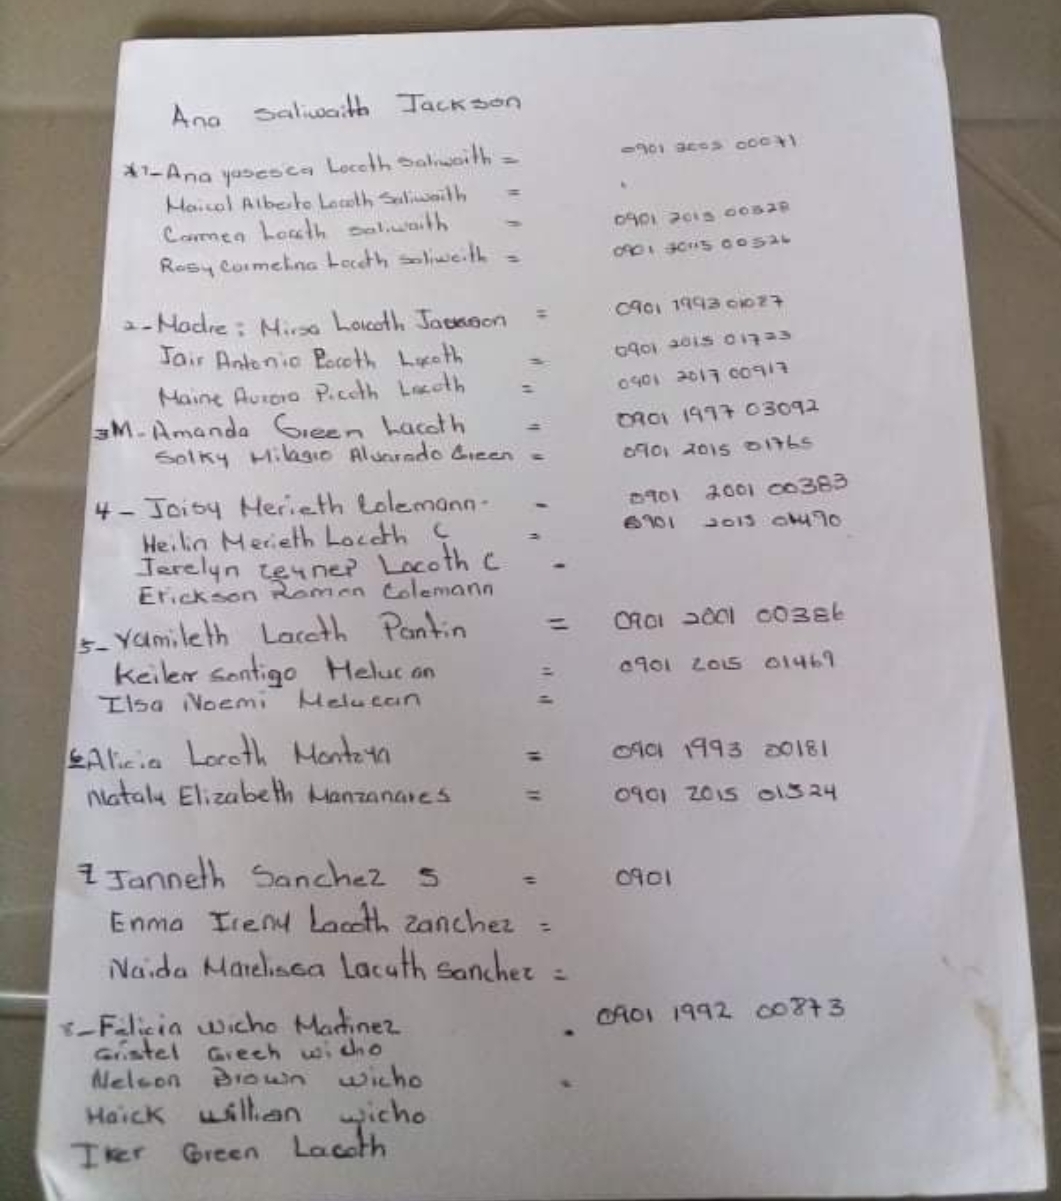 Ana Saliwaith Jackson
*1-Ana yasesca Locoth Saliwaith = 0901 2003 00071
Maicol Alberto Locoth Saliwaith =
Carmen Locoth Saliwaith = 0901 2013 00528
Rosy Carmelina Locoth Saliwaith = 0901 2015 00526
2-Madre: Mirsa Locoth Jackson = 0901 1993 01087
Jair Antonio Pocoth Lacoth = 0901 2015 01723
Maine Aurora Picoth Lacoth = 0901 2017 00917
3M-Amanda Green Lacoth = 0901 1997 03092
Solky Milagio Alvarado Green = 0901 2015 01765
4-Joisy Merieth Colemann. - 0901 2001 00383
Heilin Merieth Locoth C = 0901 2015 01490
Jerelyn Zeyner Lacoth C -
Erickson Ramon Colemann
5-Yamileth Lacoth Pantin = 0901 2001 00386
Keiler Sontigo Melucan = 0901 2015 01469
Ilsa Noemi Melucan =
6 Alicia Locoth Montoya = 0901 1993 00181
Nataly Elizabeth Manzanares = 0901 2015 01524
7 Janneth Sanchez S = 0901
Enma Ireny Lacoth Zanchez =
Naida Marelissa Lacuth Sanchez =
8-Felicia Wicho Martinez . 0901 1992 00873
Gristel Greeh wicho
Nelson Brown wicho
Haick Willian wicho
Iker Green Lacoth